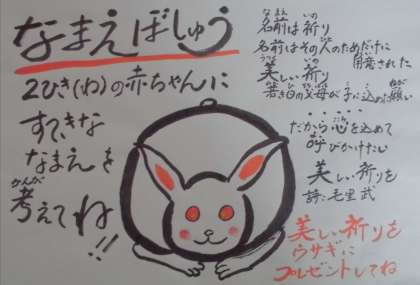 なまえぼしゅう
2ひき(わ)の赤ちゃんに
すてきな
なまえを
考えてね!!
かんが
名前は祈り
なまえ いの
名前はその人のためだけに
用意された
美しい祈り
若き日の父母が子に込めた願い
だから心を込めて
呼びかけたい
美しい祈りを
詩:毛里 武
美しい祈りを
ウサギに
プレゼントしてね